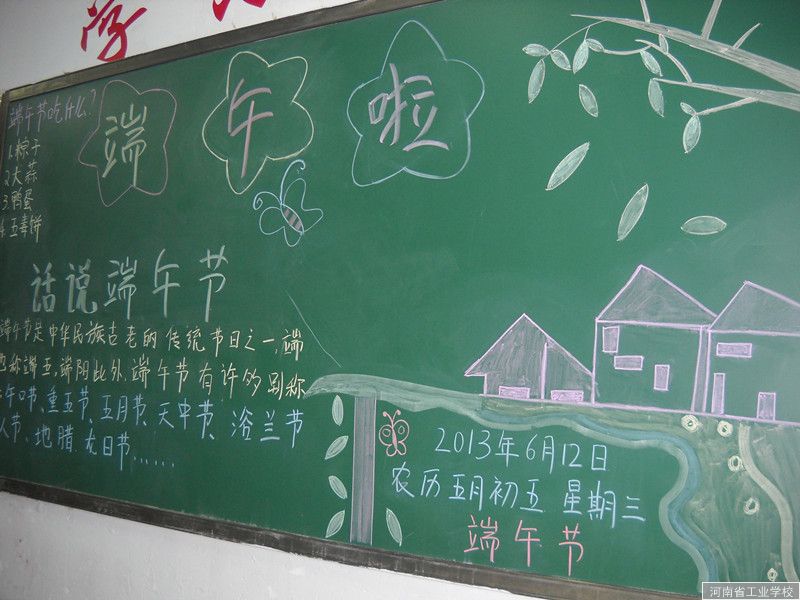 学
端午节吃什么?
1.粽子
2.大蒜
3.鸭蛋
4.五毒饼
端午啦
话说端午节
端午节是中华民族古老的传统节日之一,端
也称端五,端阳此外,端午节有许多别称
午日节、重五节、五月节、天中节、浴兰节
人节、地腊、龙日节……
2013年6月12日
农历五月初五 星期三
端午节
河南省工业学校